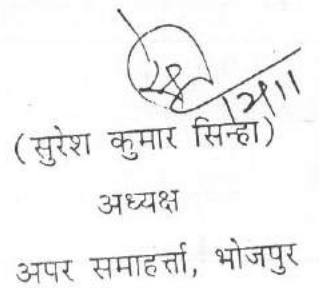 (सुरेश कुमार सिन्हा)
अध्यक्ष
अपर समाहर्त्ता, भोजपुर